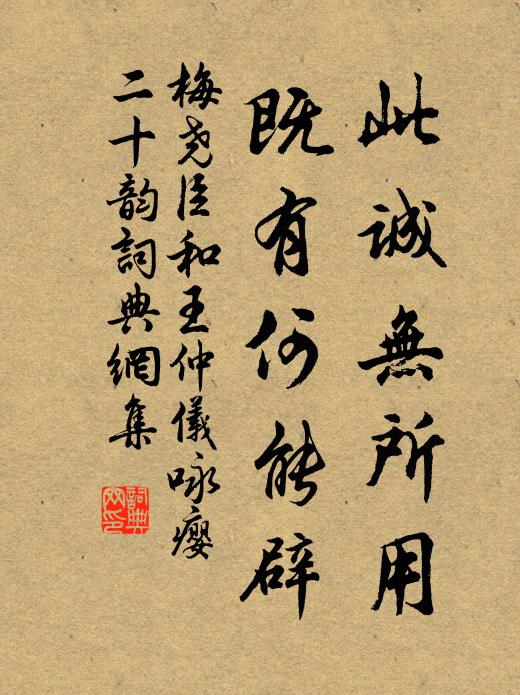 此诚無所用
既有何能辟
梅尧臣和王仲儀咏癭
二十韵詞典網集
詞典
网印